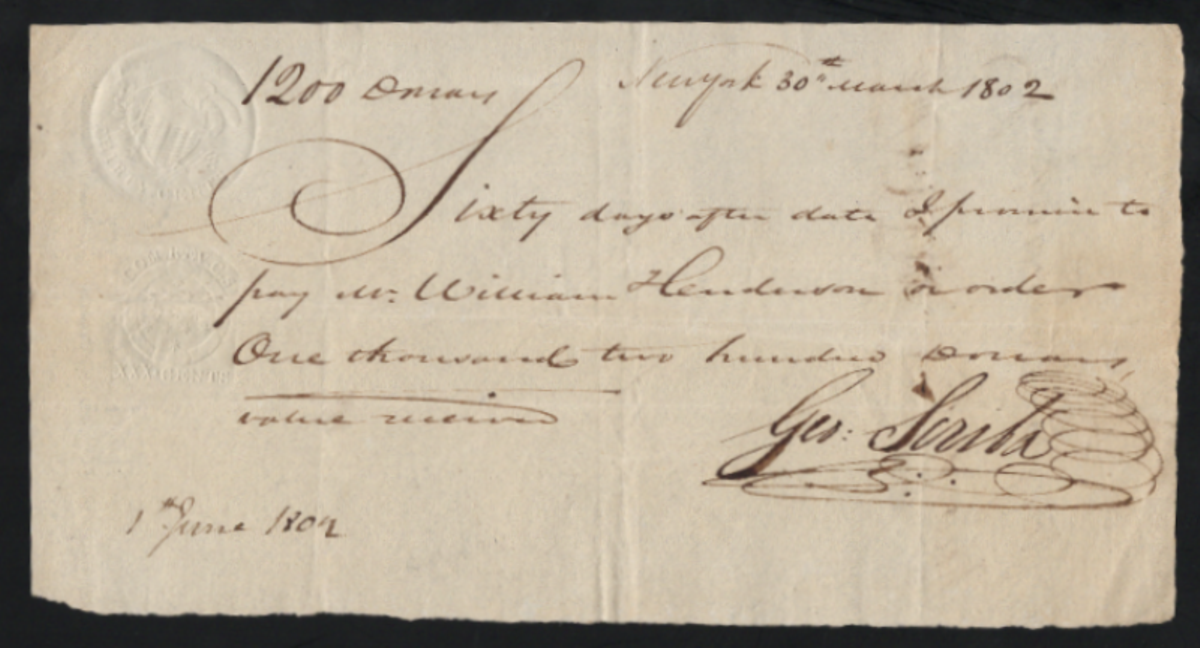 1200 Dollars New York 30th March 1802
Sixty days after date I promise to
pay Mr. William Henderson or order
One thousand two hundred Dollars,
value received
Geo: Scriba
1st June 1802
XX CENTS